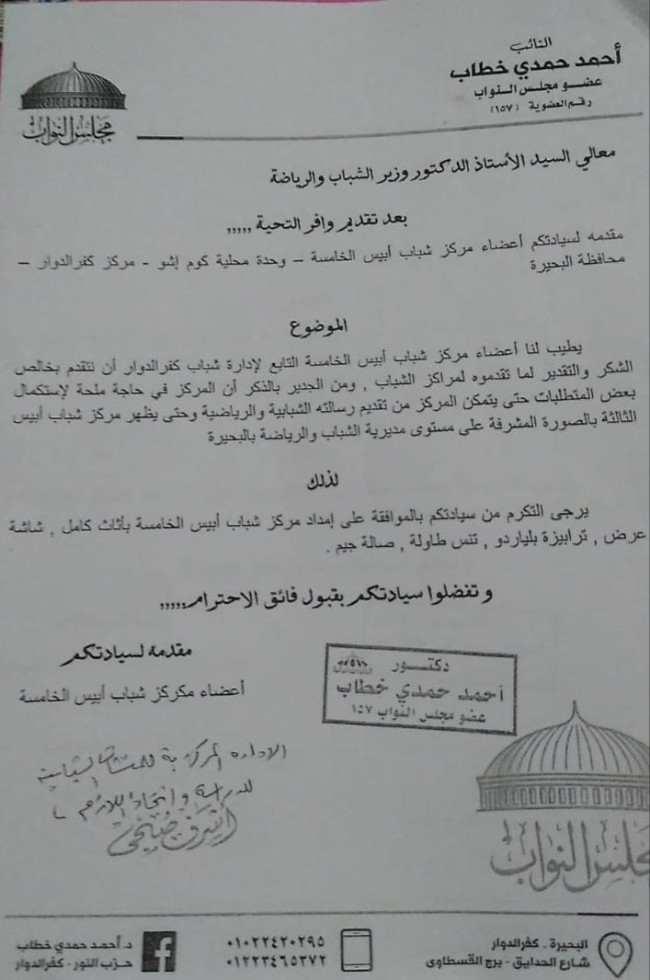 النائب
أحمد حمدي خطاب
عضو مجلس النواب
رقم العضوية (١٥٧)
مجلس النواب
معالي السيد الأستاذ الدكتور وزير الشباب والرياضة
بعد تقديم وافر التحية ,,,,,
مقدمه لسيادتكم أعضاء مركز شباب أبيس الخامسة – وحدة محلية كوم إشو - مركز كفرالدوار –
محافظة البحيرة
الموضوع
يطيب لنا أعضاء مركز شباب أبيس الخامسة التابع لإدارة شباب كفرالدوار أن نتقدم بخالص
الشكر والتقدير لما تقدموه لمراكز الشباب , ومن الجدير بالذكر أن المركز في حاجة ملحة لإستكمال
بعض المتطلبات حتى يتمكن المركز من تقديم رسالته الشبابية والرياضية وحتى يظهر مركز شباب أبيس
الثالثة بالصورة المشرفة على مستوى مديرية الشباب والرياضة بالبحيرة
لذلك
يرجى التكرم من سيادتكم بالموافقة على إمداد مركز شباب أبيس الخامسة بأثاث كامل , شاشة
عرض , ترابيزة بلياردو , تنس طاولة , صالة جيم .
وتفضلوا سيادتكم بقبول فائق الاحترام,,,,,
مقدمه لسيادتكم
أعضاء مكركز شباب أبيس الخامسة
دكتور
أحمد حمدي خطاب
عضو مجلس النواب ١٥٧
الاداره المركزية للمنشآت الشبابية
للدراسة واتخاذ اللازم
أشرف صبحي
مجلس النواب
البحيرة . كفرالدوار
شارع الحدايق - برج القسطاوى
٠١٠٢٢٤٢٠٢٩٥
٠١٢٢٣٤٦٥٢٧٢
د. أحمد حمدي خطاب
حزب النور - كفرالدوار